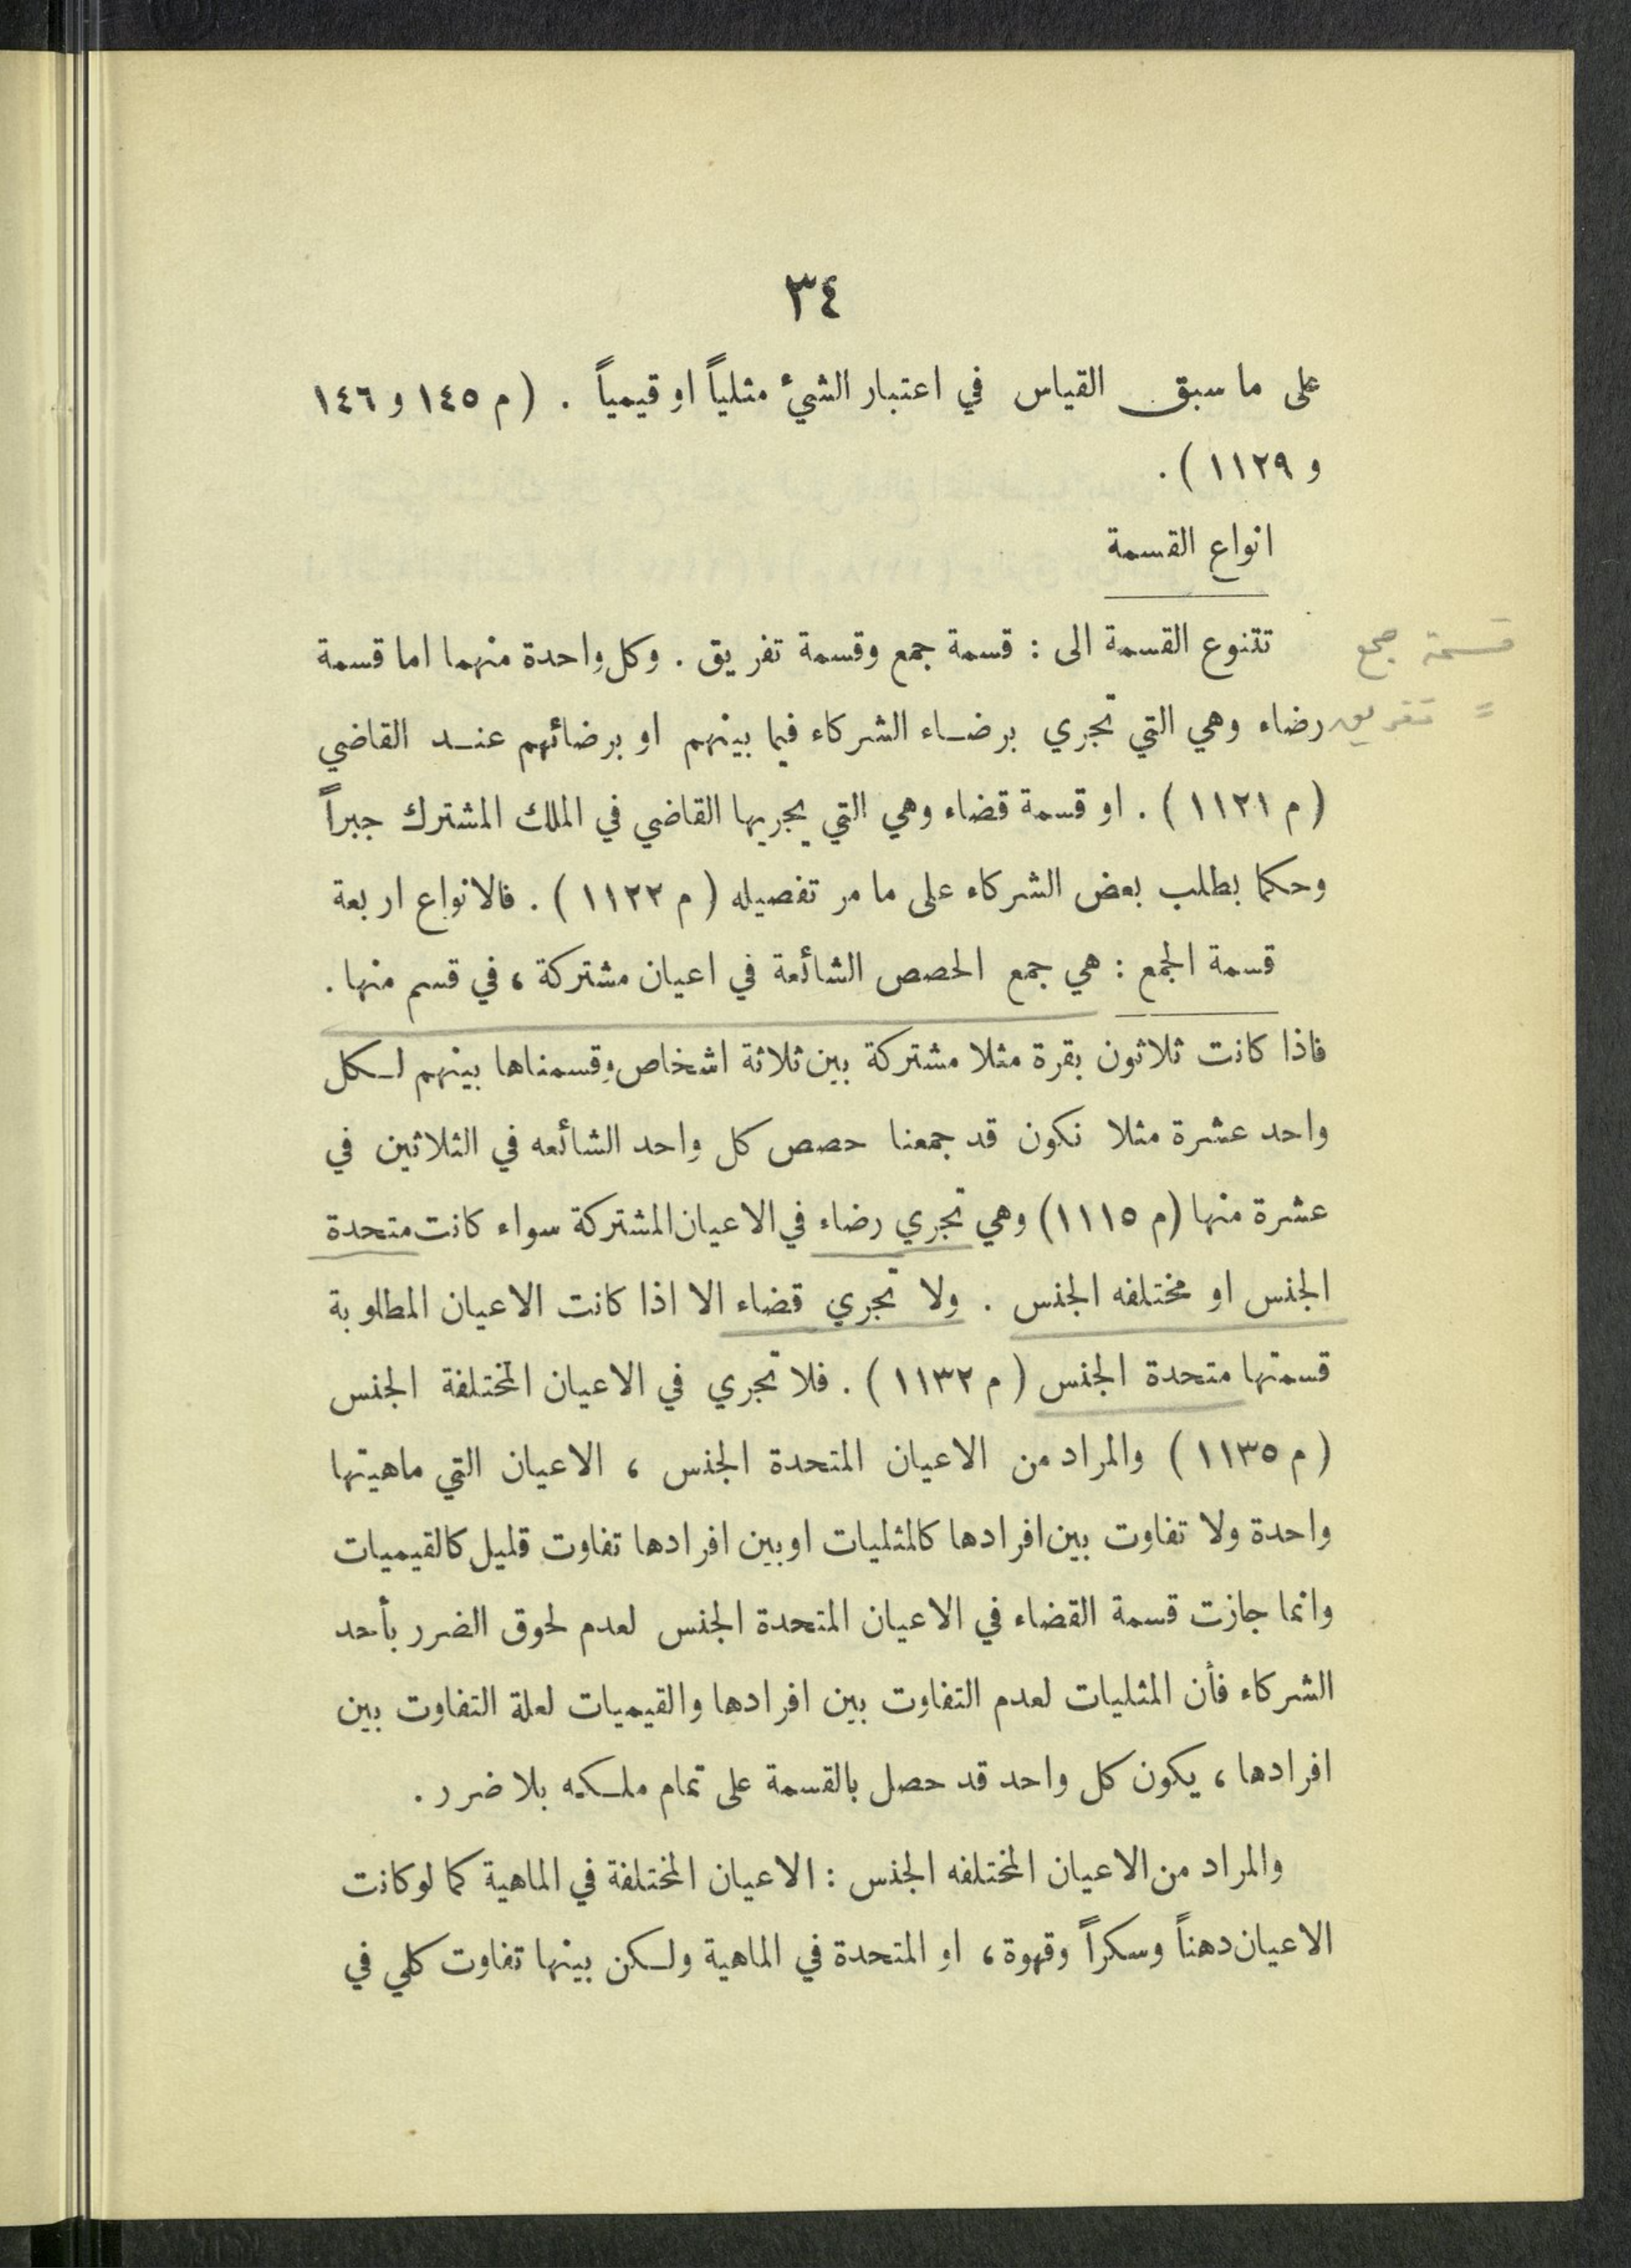 ٣٤
على ما سبق القياس في اعتبار الشيء مثلياً او قيمياً . ( م ١٤٥ و ١٤٦
و ١١٢٩ ) .
انواع القسمة
تتنوع القسمة الى : قسمة جمع وقسمة تفريق . وكل واحدة منهما اما قسمة
قسمة جمع
رضاء وهي التي تجري برضاء الشركاء فيما بينهم او برضائهم عند القاضي
= تفريق
( م ١١٢١ ) . او قسمة قضاء وهي التي يجريها القاضي في الملك المشترك جبراً
وحكما بطلب بعض الشركاء على ما مر تفصيله ( م ١١٢٢ ) . فالانواع اربعة
قسمة الجمع : هي جمع الحصص الشائعة في اعيان مشتركة ، في قسم منها .
فاذا كانت ثلاثون بقرة مثلا مشتركة بين ثلاثة اشخاص وقسمناها بينهم لكل
واحد عشرة مثلا نكون قد جمعنا حصص كل واحد الشائعه في الثلاثين في
عشرة منها (م ١١١٥) وهي تجري رضاء في الاعيان المشتركة سواء كانت متحدة
الجنس او مختلفه الجنس . ولا تجري قضاء الا اذا كانت الاعيان المطلوبة
قسمتها متحدة الجنس ( م ١١٣٢ ) . فلا تجري في الاعيان المختلفة الجنس
( م ١١٣٥ ) والمراد من الاعيان المتحدة الجنس ، الاعيان التي ماهيتها
واحدة ولا تفاوت بين افرادها كالمثليات او بين افرادها تفاوت قليل كالقيميات
وانما جازت قسمة القضاء في الاعيان المتحدة الجنس لعدم لحوق الضرر بأحد
الشركاء فأن المثليات لعدم التفاوت بين افرادها والقيميات لعلة التفاوت بين
افرادها ، يكون كل واحد قد حصل بالقسمة على تمام ملكه بلا ضرر .
والمراد من الاعيان المختلفه الجنس : الاعيان المختلفة في الماهية كما لو كانت
الاعيان دهناً وسكراً وقهوة ، او المتحدة في الماهية ولكن بينها تفاوت كلي في